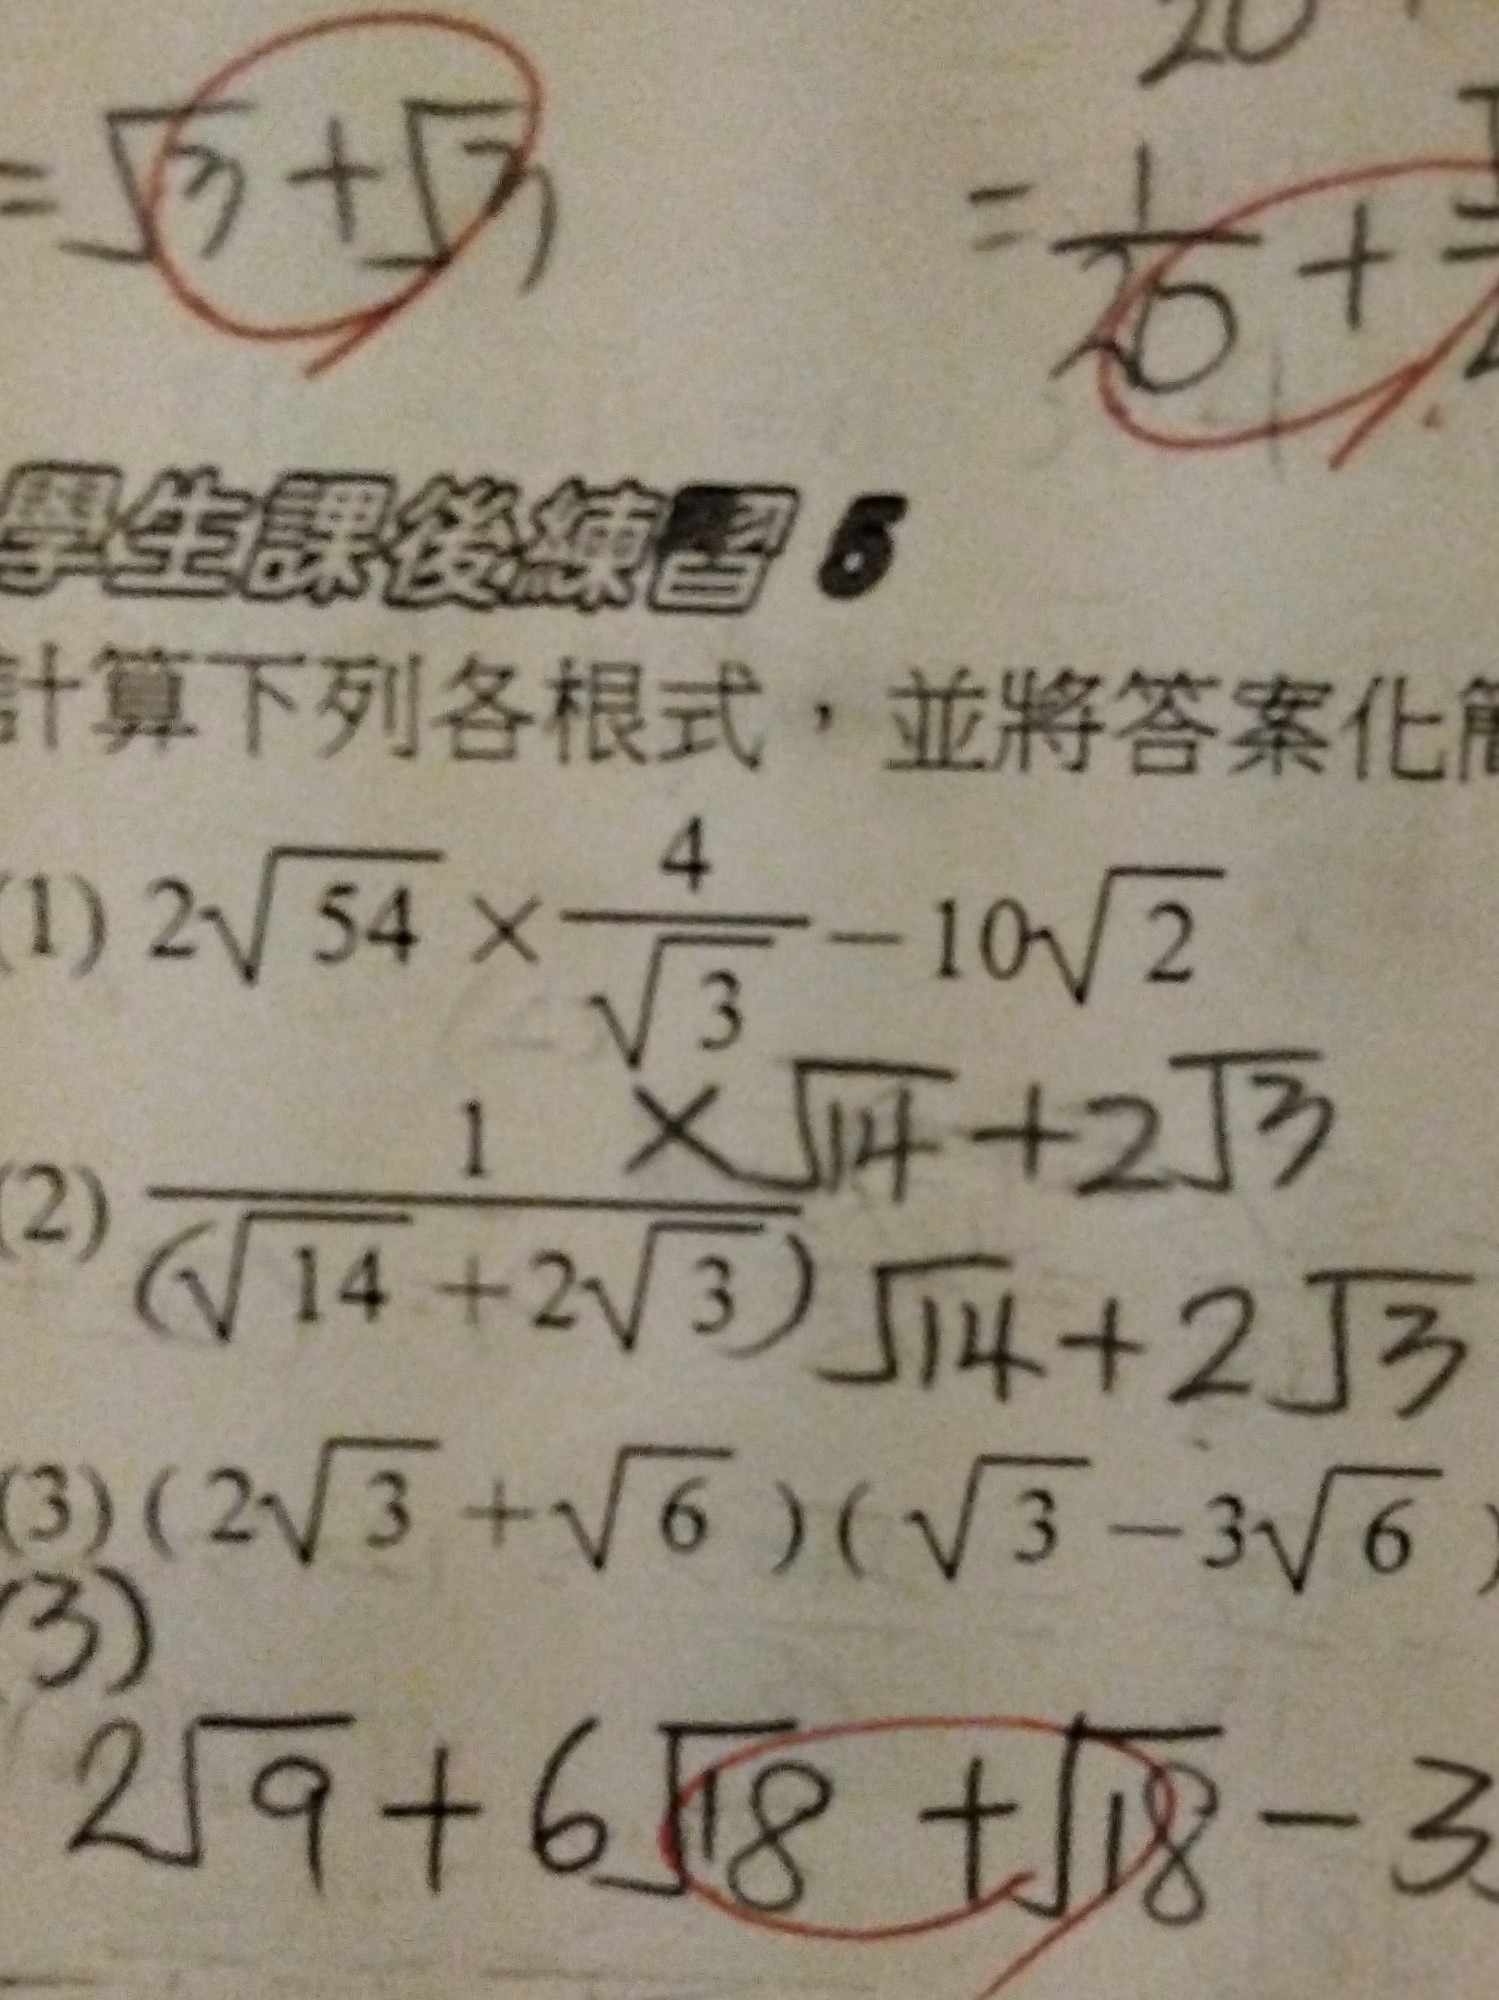 20
= √3 + √7
= 1/20 +
學生課後練習 6
計算下列各根式，並將答案化簡
(1) 2√54 × 4/√3 − 10√2
(2) 1/(√14 + 2√3) × √14 + 2√3
√14 + 2√3
(3) (2√3 + √6)(√3 − 3√6)
(3)
2√9 + 6√18 + √18 − 3